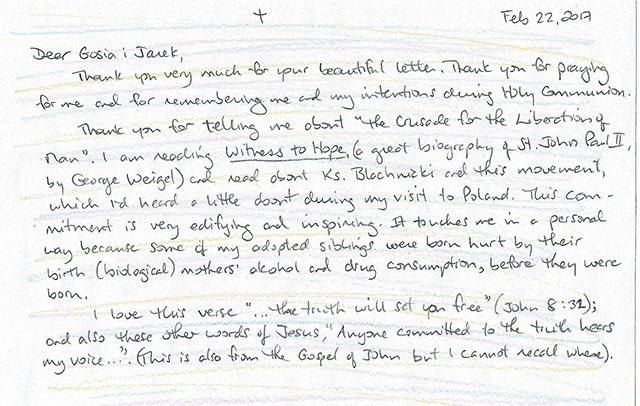 +
Feb 22, 2017
Dear Gosia i Jarek,
Thank you very much for your beautiful letter. Thank you for praying
for me and for remembering me and my intentions during Holy Communion.
Thank you for telling me about "the Crusade for the Liberation of
Man". I am reading Witness to Hope, (a great biography of St. John Paul II,
by George Weigel) and read about Ks. Blachnicki and this movement,
which I'd heard a little about during my visit to Poland. This com-
mitment is very edifying and inspiring. It touches me in a personal
way because some of my adopted siblings were born hurt by their
birth (biological) mothers' alcohol and drug consumption, before they were
born.
I love this verse "...the truth will set you free" (John 8:32);
and also these other words of Jesus, "Anyone committed to the truth hears
my voice...". (This is also from the Gospel of John but I cannot recall where).